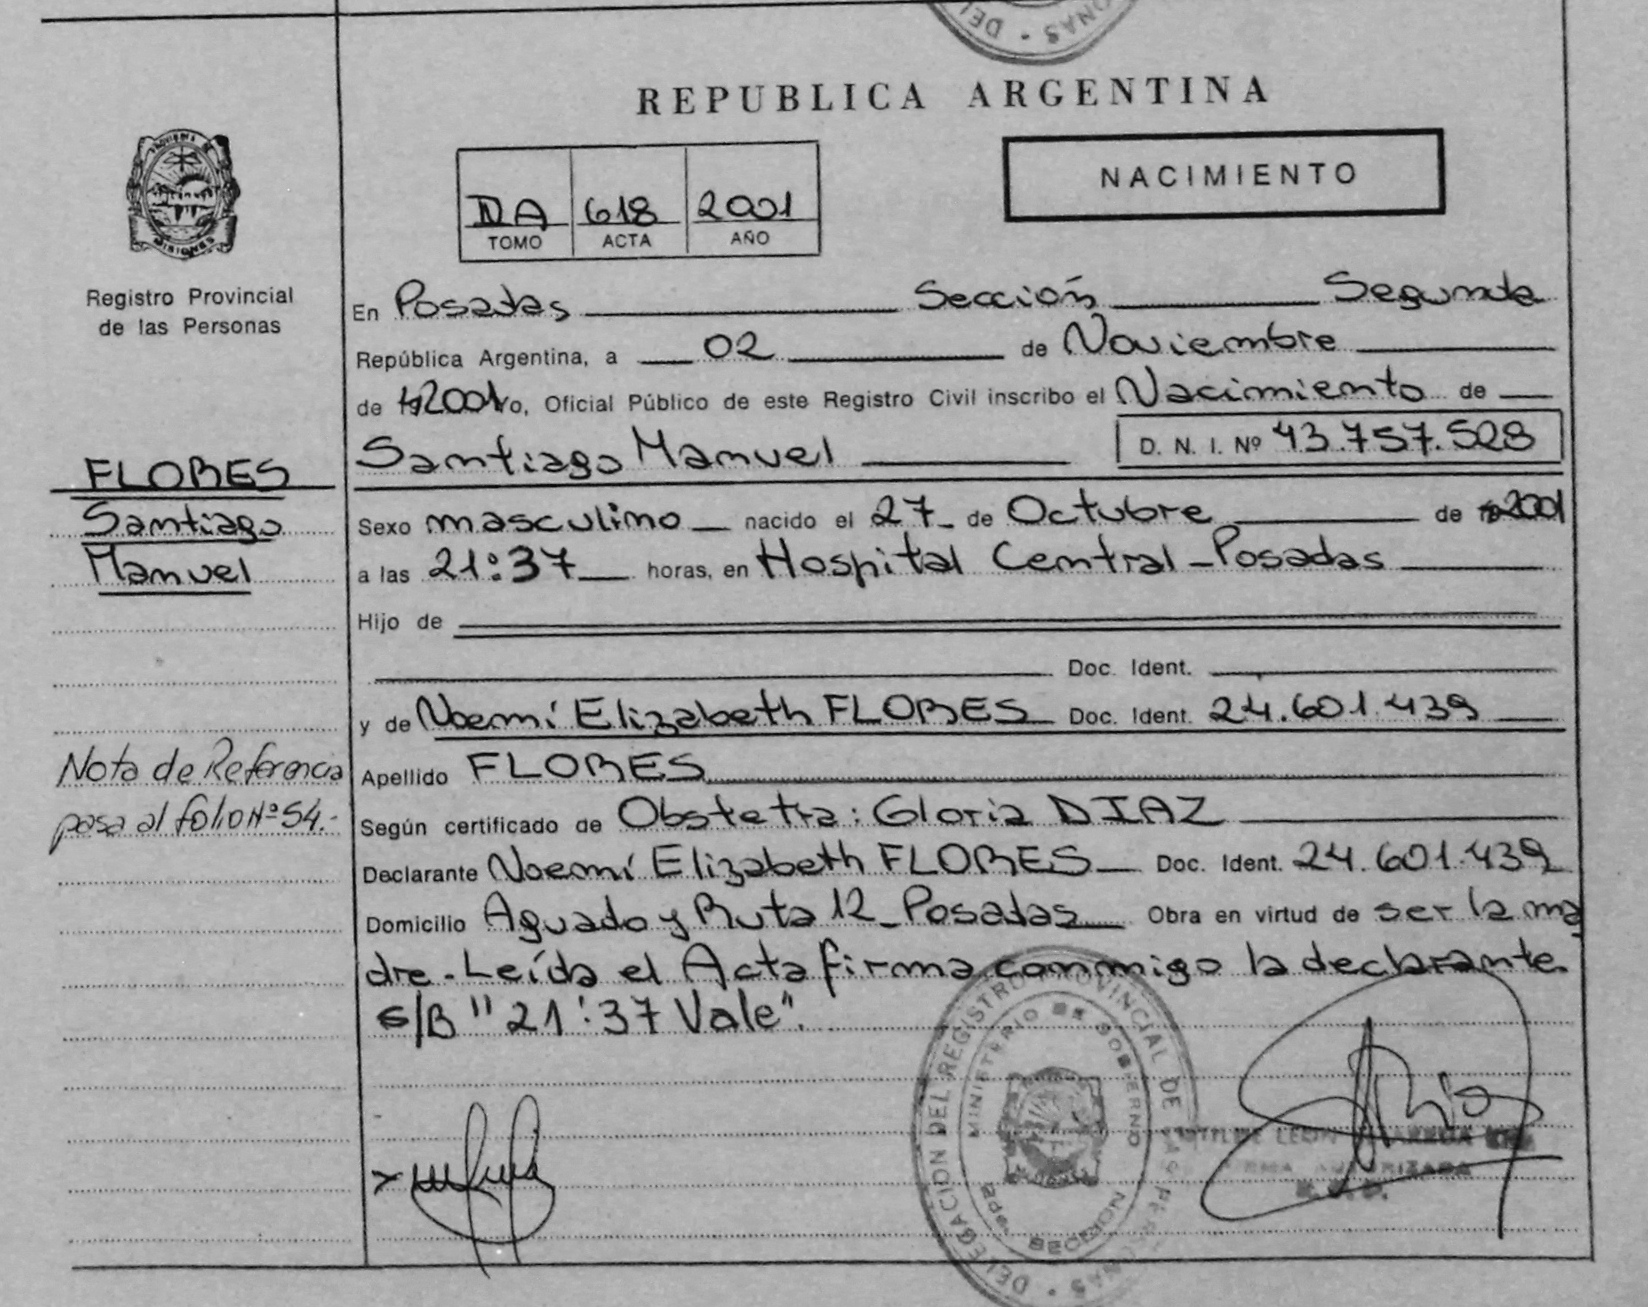 DEL ONAS
REPUBLICA ARGENTINA
NACIMIENTO
DA 618 2001
TOMO ACTA AÑO
MISIONES
Registro Provincial
de las Personas
En Posadas Sección Segunda
República Argentina, a 02 de Noviembre
de 2001 yo, Oficial Público de este Registro Civil inscribo el Nacimiento de
Santiago Manuel D. N. I. Nº 43.757.528
FLORES
Santiago
Manuel
Sexo masculino nacido el 27 de Octubre de 2001
a las 21:37 horas, en Hospital Central - Posadas
Hijo de
Doc. Ident.
y de Noemí Elizabeth FLORES Doc. Ident. 24.601.439
Nota de Referencia
pasa al folio Nº 54.-
Apellido FLORES
Según certificado de Obstetra: Gloria DIAZ
Declarante Noemí Elizabeth FLORES Doc. Ident. 24.601.439
Domicilio Aguado y Ruta 12 - Posadas Obra en virtud de ser la ma
dre.- Leída el Acta firma conmigo la declarante.
S/B "21:37 Vale".
DELEGACION DEL REGISTRO PROVINCIAL DE LAS PERSONAS
MINISTERIO DE GOBIERNO
SECCION
LEON
FIRMA AUTORIZADA